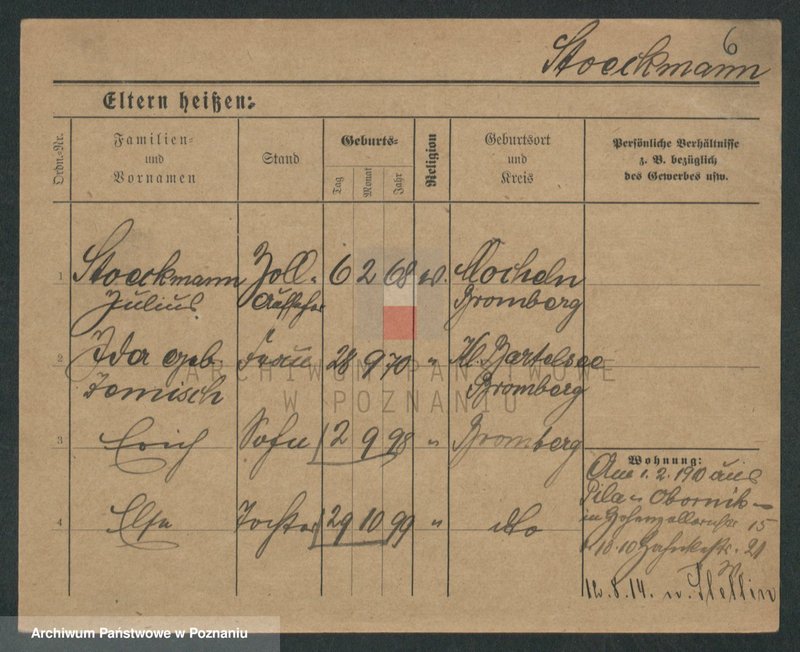 6
Stoeckmann
Eltern heißen:
Ordn.-Nr.
Familien-
und
Vornamen
Stand
Geburts-
Tag
Monat
Jahr
Religion
Geburtsort
und
Kreis
Persönliche Verhältnisse
z. B. bezüglich
des Gewerbes usw.
1 Stoeckmann Zoll- 6 2 68 ev. Mocheln
Julius Aufseher Bromberg
2 Ida geb. Frau 28 9 70 " Kl. Bartelsee
Jemisch Bromberg
3 Erich Sohn 2 9 98 " Bromberg
4 Else Tochter 29 10 99 " dto
Wohnung:
Am 1. 2. 190 aus
Pila - Obornik -
in Hohenzollernstr 15
10.10 21
12.8.14. n. Stettin
ARCHIWUM PAŃSTWOWE
W POZNANIU
Archiwum Państwowe w Poznaniu